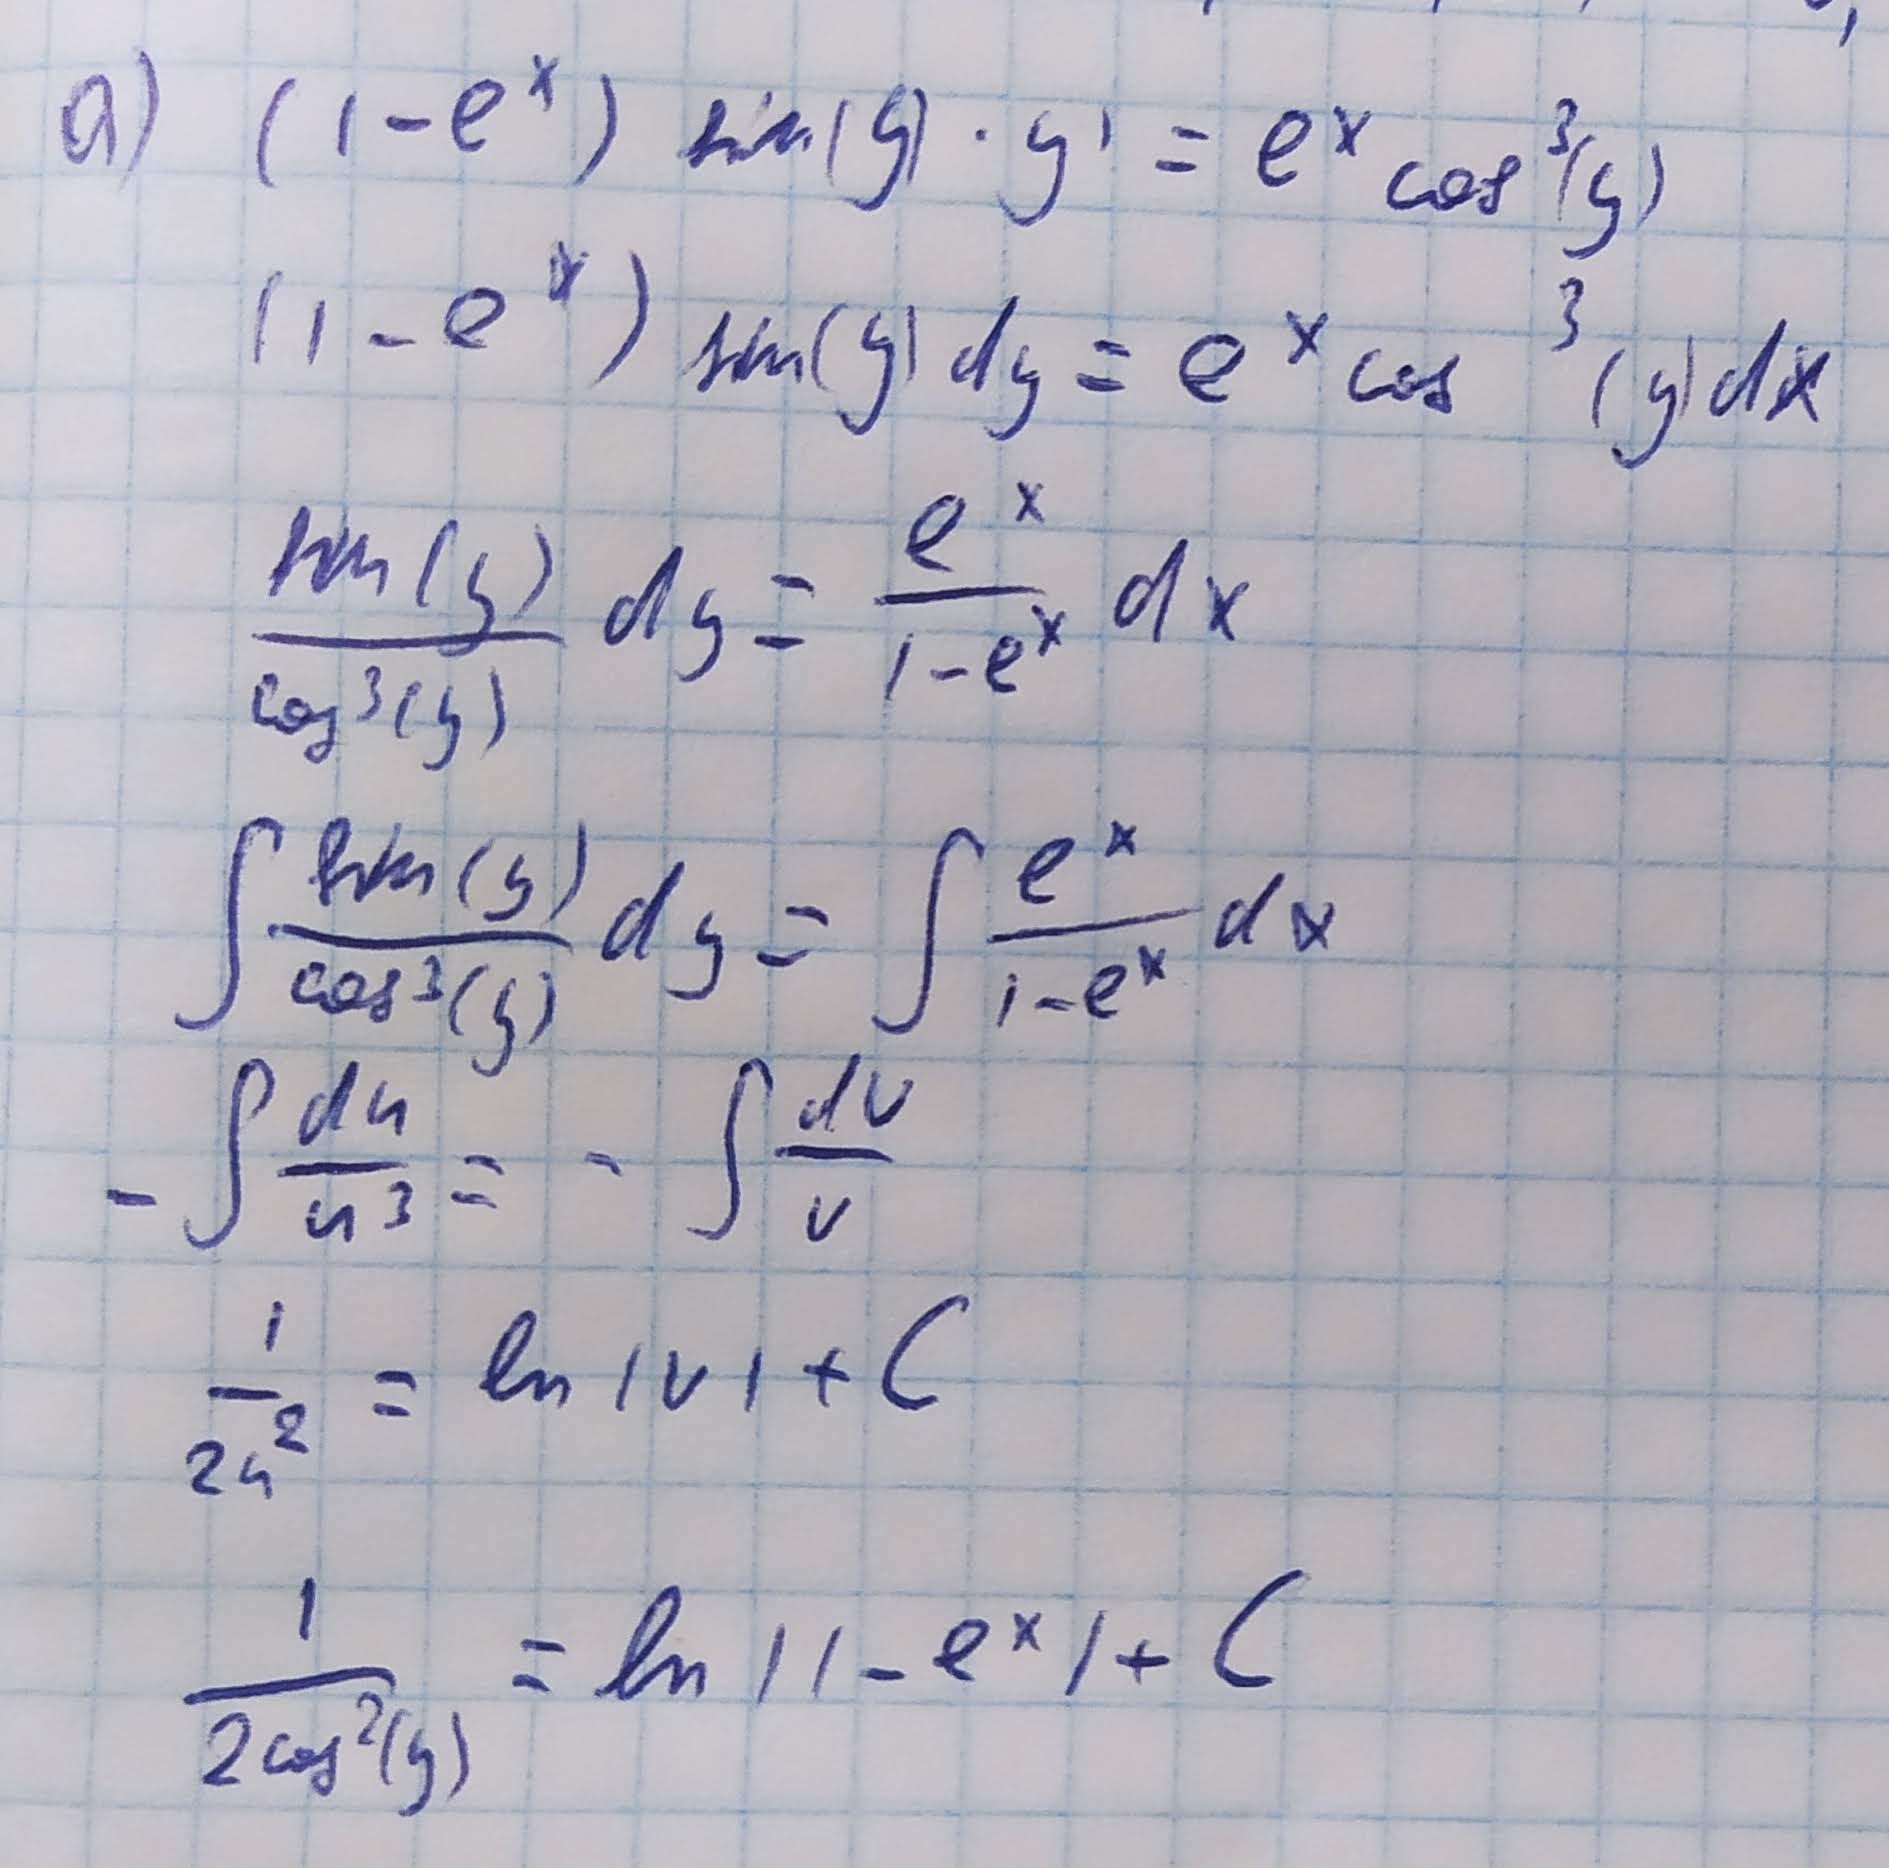 a) (1-e^x) sin(y) · y' = e^x cos^3(y)
(1-e^x) sin(y) dy = e^x cos^3(y) dx
sin(y)/cos^3(y) dy = e^x/(1-e^x) dx
∫ sin(y)/cos^3(y) dy = ∫ e^x/(1-e^x) dx
-∫ du/u^3 = -∫ dv/v
1/(2u^2) = ln|v| + C
1/(2cos^2(y)) = ln|1-e^x| + C